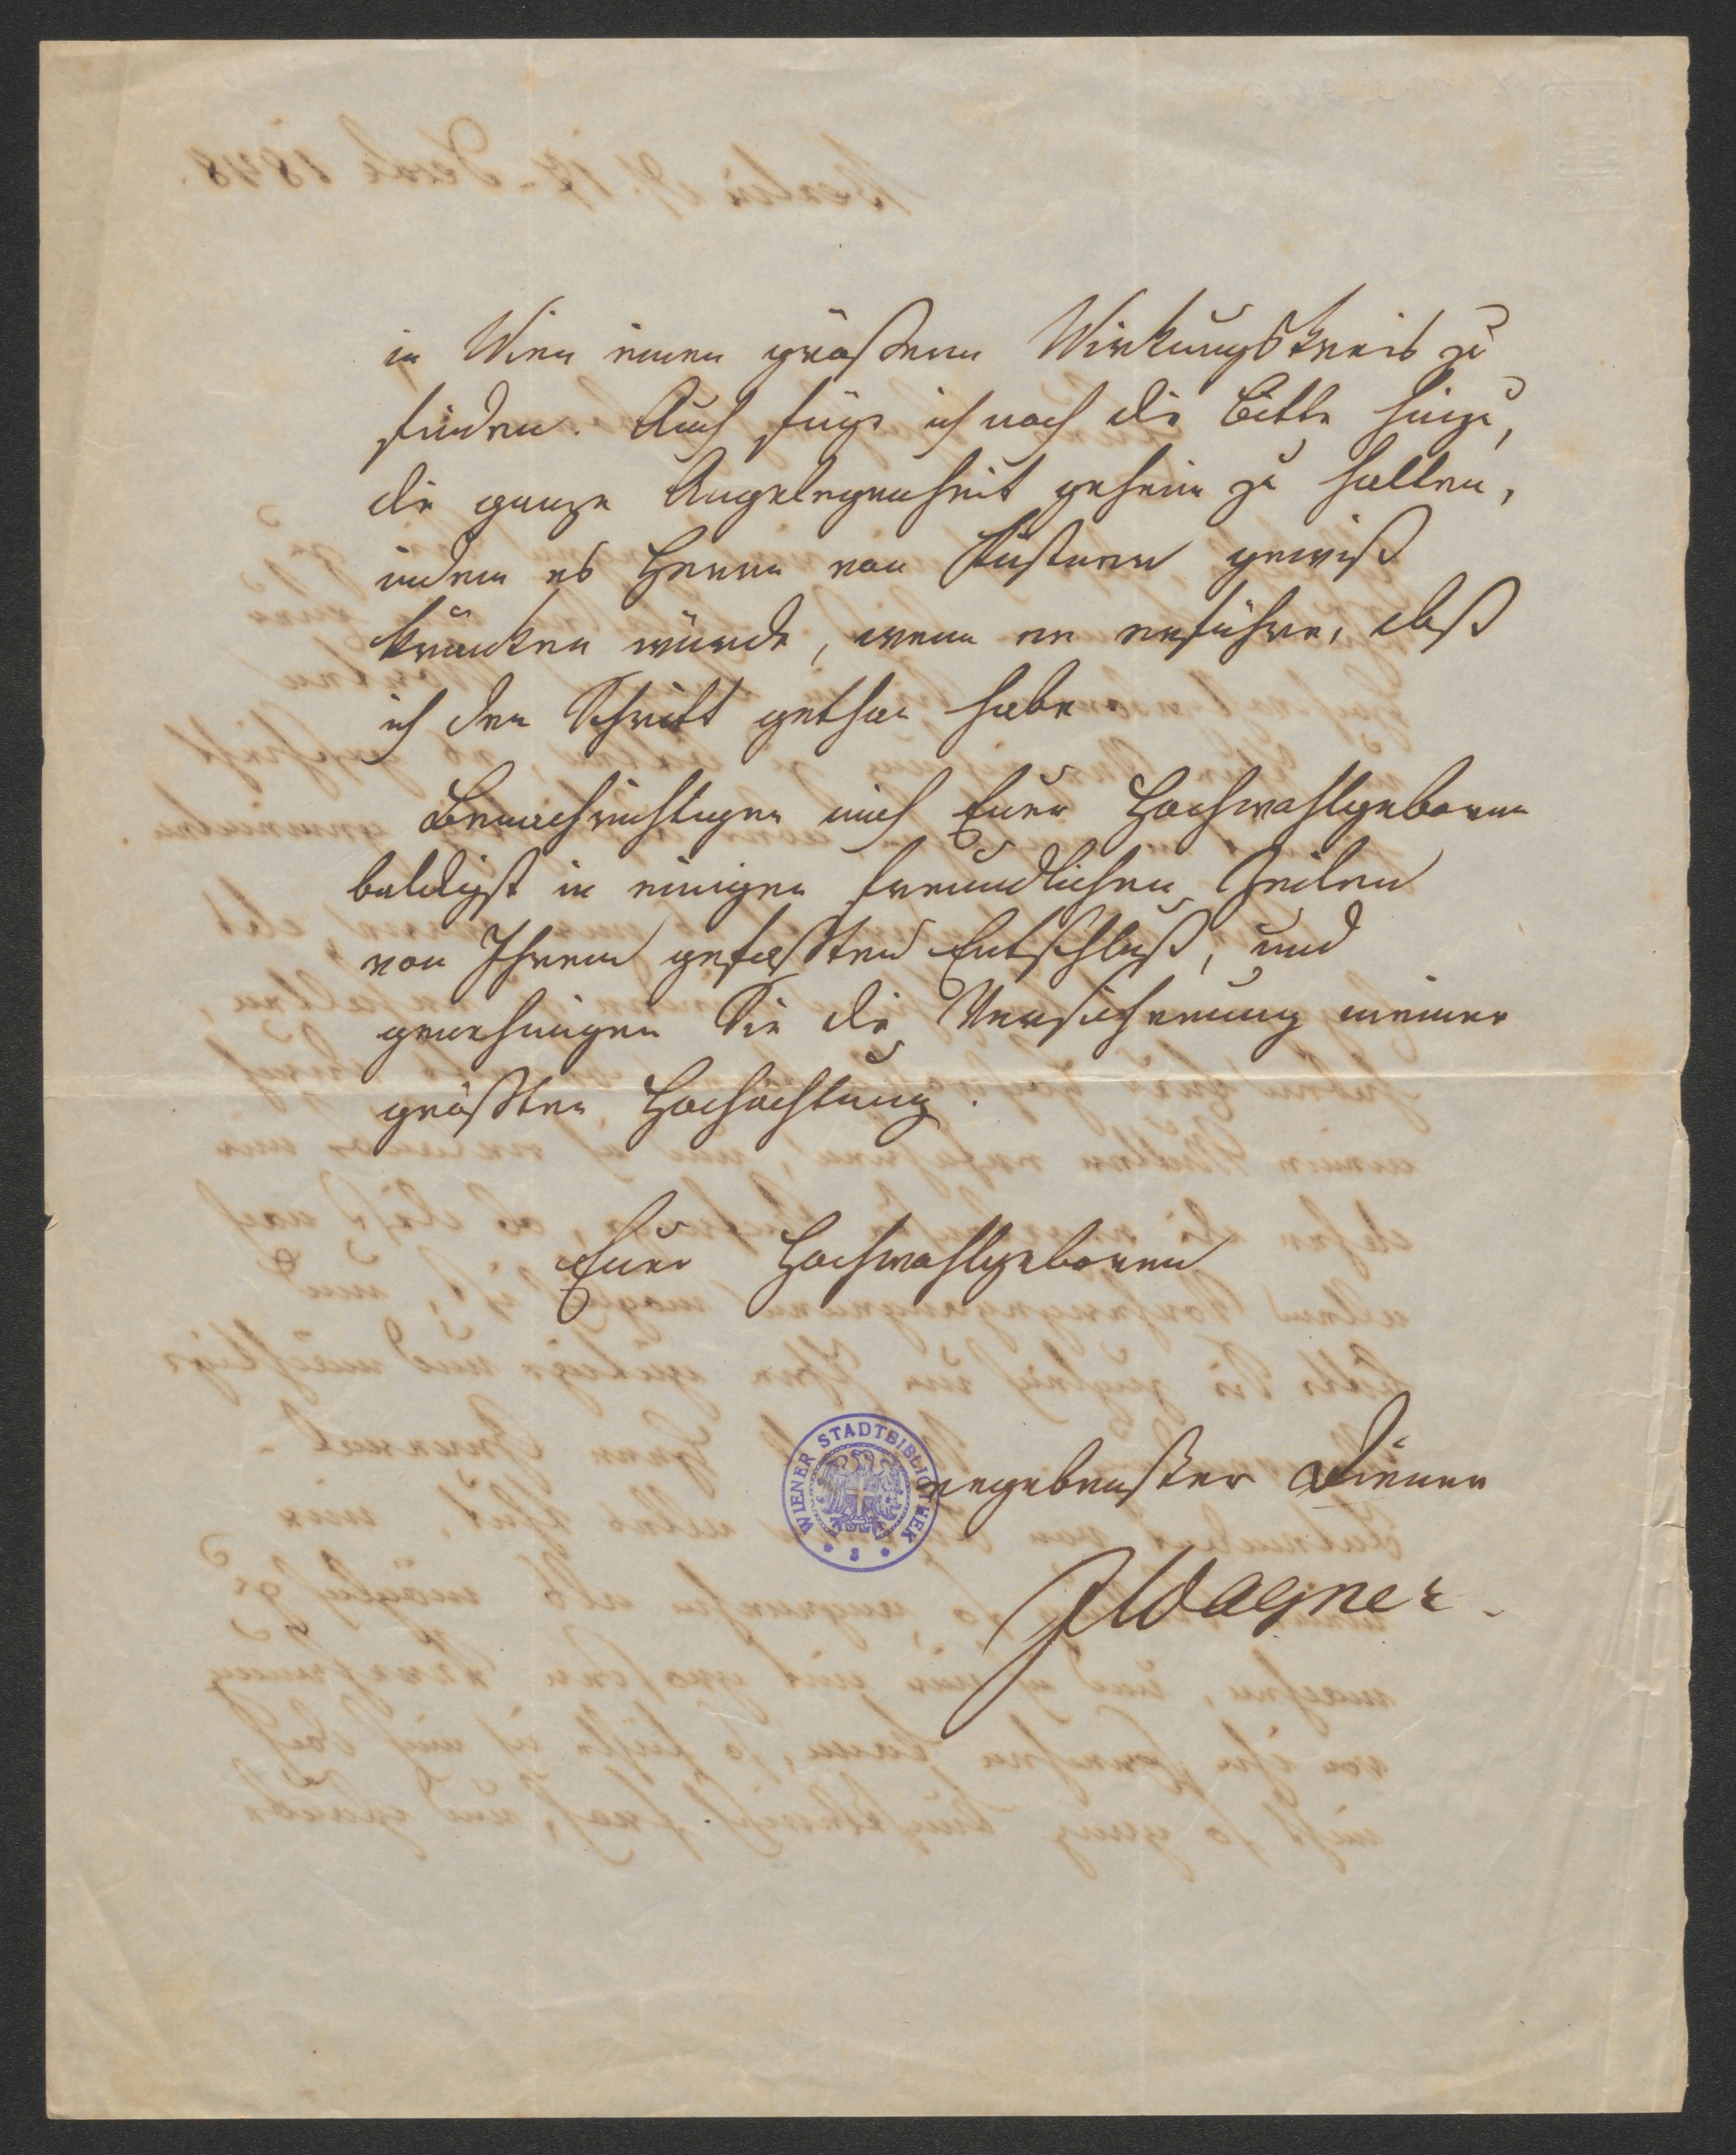 in Wien einen größern Wirkungskreis zu
finden. Auch füge ich noch die Bitte hinzu,
die ganze Angelegenheit geheim zu halten,
indem es Herrn von Küstner gewiß
kränken würde, wenn er erführe, daß
ich den Schritt gethan habe
Benachrichtigen mich Euer Hochwohlgeboren
baldigst in einigen freundlichen Zeilen
von Ihrem gefaßten Entschluß, und
genehmigen Sie die Versicherung meiner
größten Hochachtung.
Euer Hochwohlgeboren
WIENER STADTBIBLIOTHEK
ergebenster Diener
JWagner.